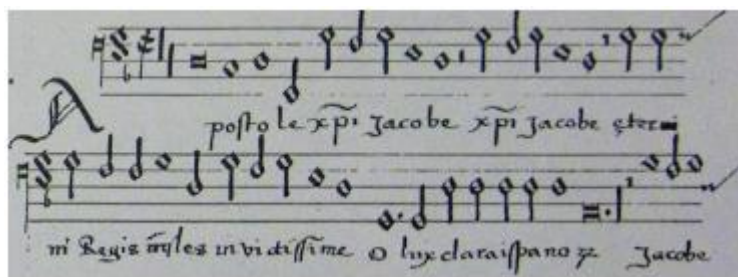 A posto le xp̃i Jacobe xp̃i Jacobe ęter
ni Regis myles in vi dissime o lux clara ispano ꝝ Jacobe